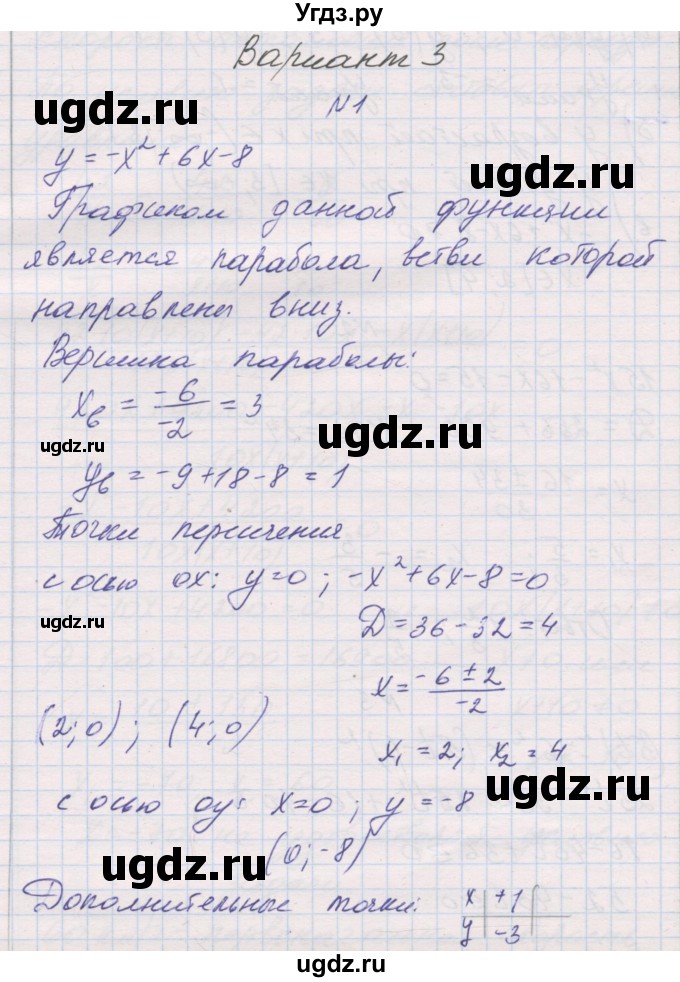 Угдз.ру
Вариант 3
ugdz.ru
N1
y = -x² + 6x - 8
ugdz.ru
Графиком данной функции
является парабола, ветви которой
направлены вниз.
ugdz.ru
Вершина параболы:
x_в = -6/-2 = 3
ugdz.ru
ugdz.ru
y_в = -9 + 18 - 8 = 1
Точки пересечения
с осью ox: y=0 ; -x² + 6x - 8 = 0
ugdz.ru
Д = 36 - 32 = 4
ugdz.ru
x = -6 ± 2/-2
(2; 0) ; (4; 0)
x₁ = 2; x₂ = 4
ugdz.ru
с осью oy: x=0 ; y = -8
(0; -8)
ugdz.ru
Дополнительные точки: x | +1 |
y | -3 |
ugdz.ru
ugdz.ru